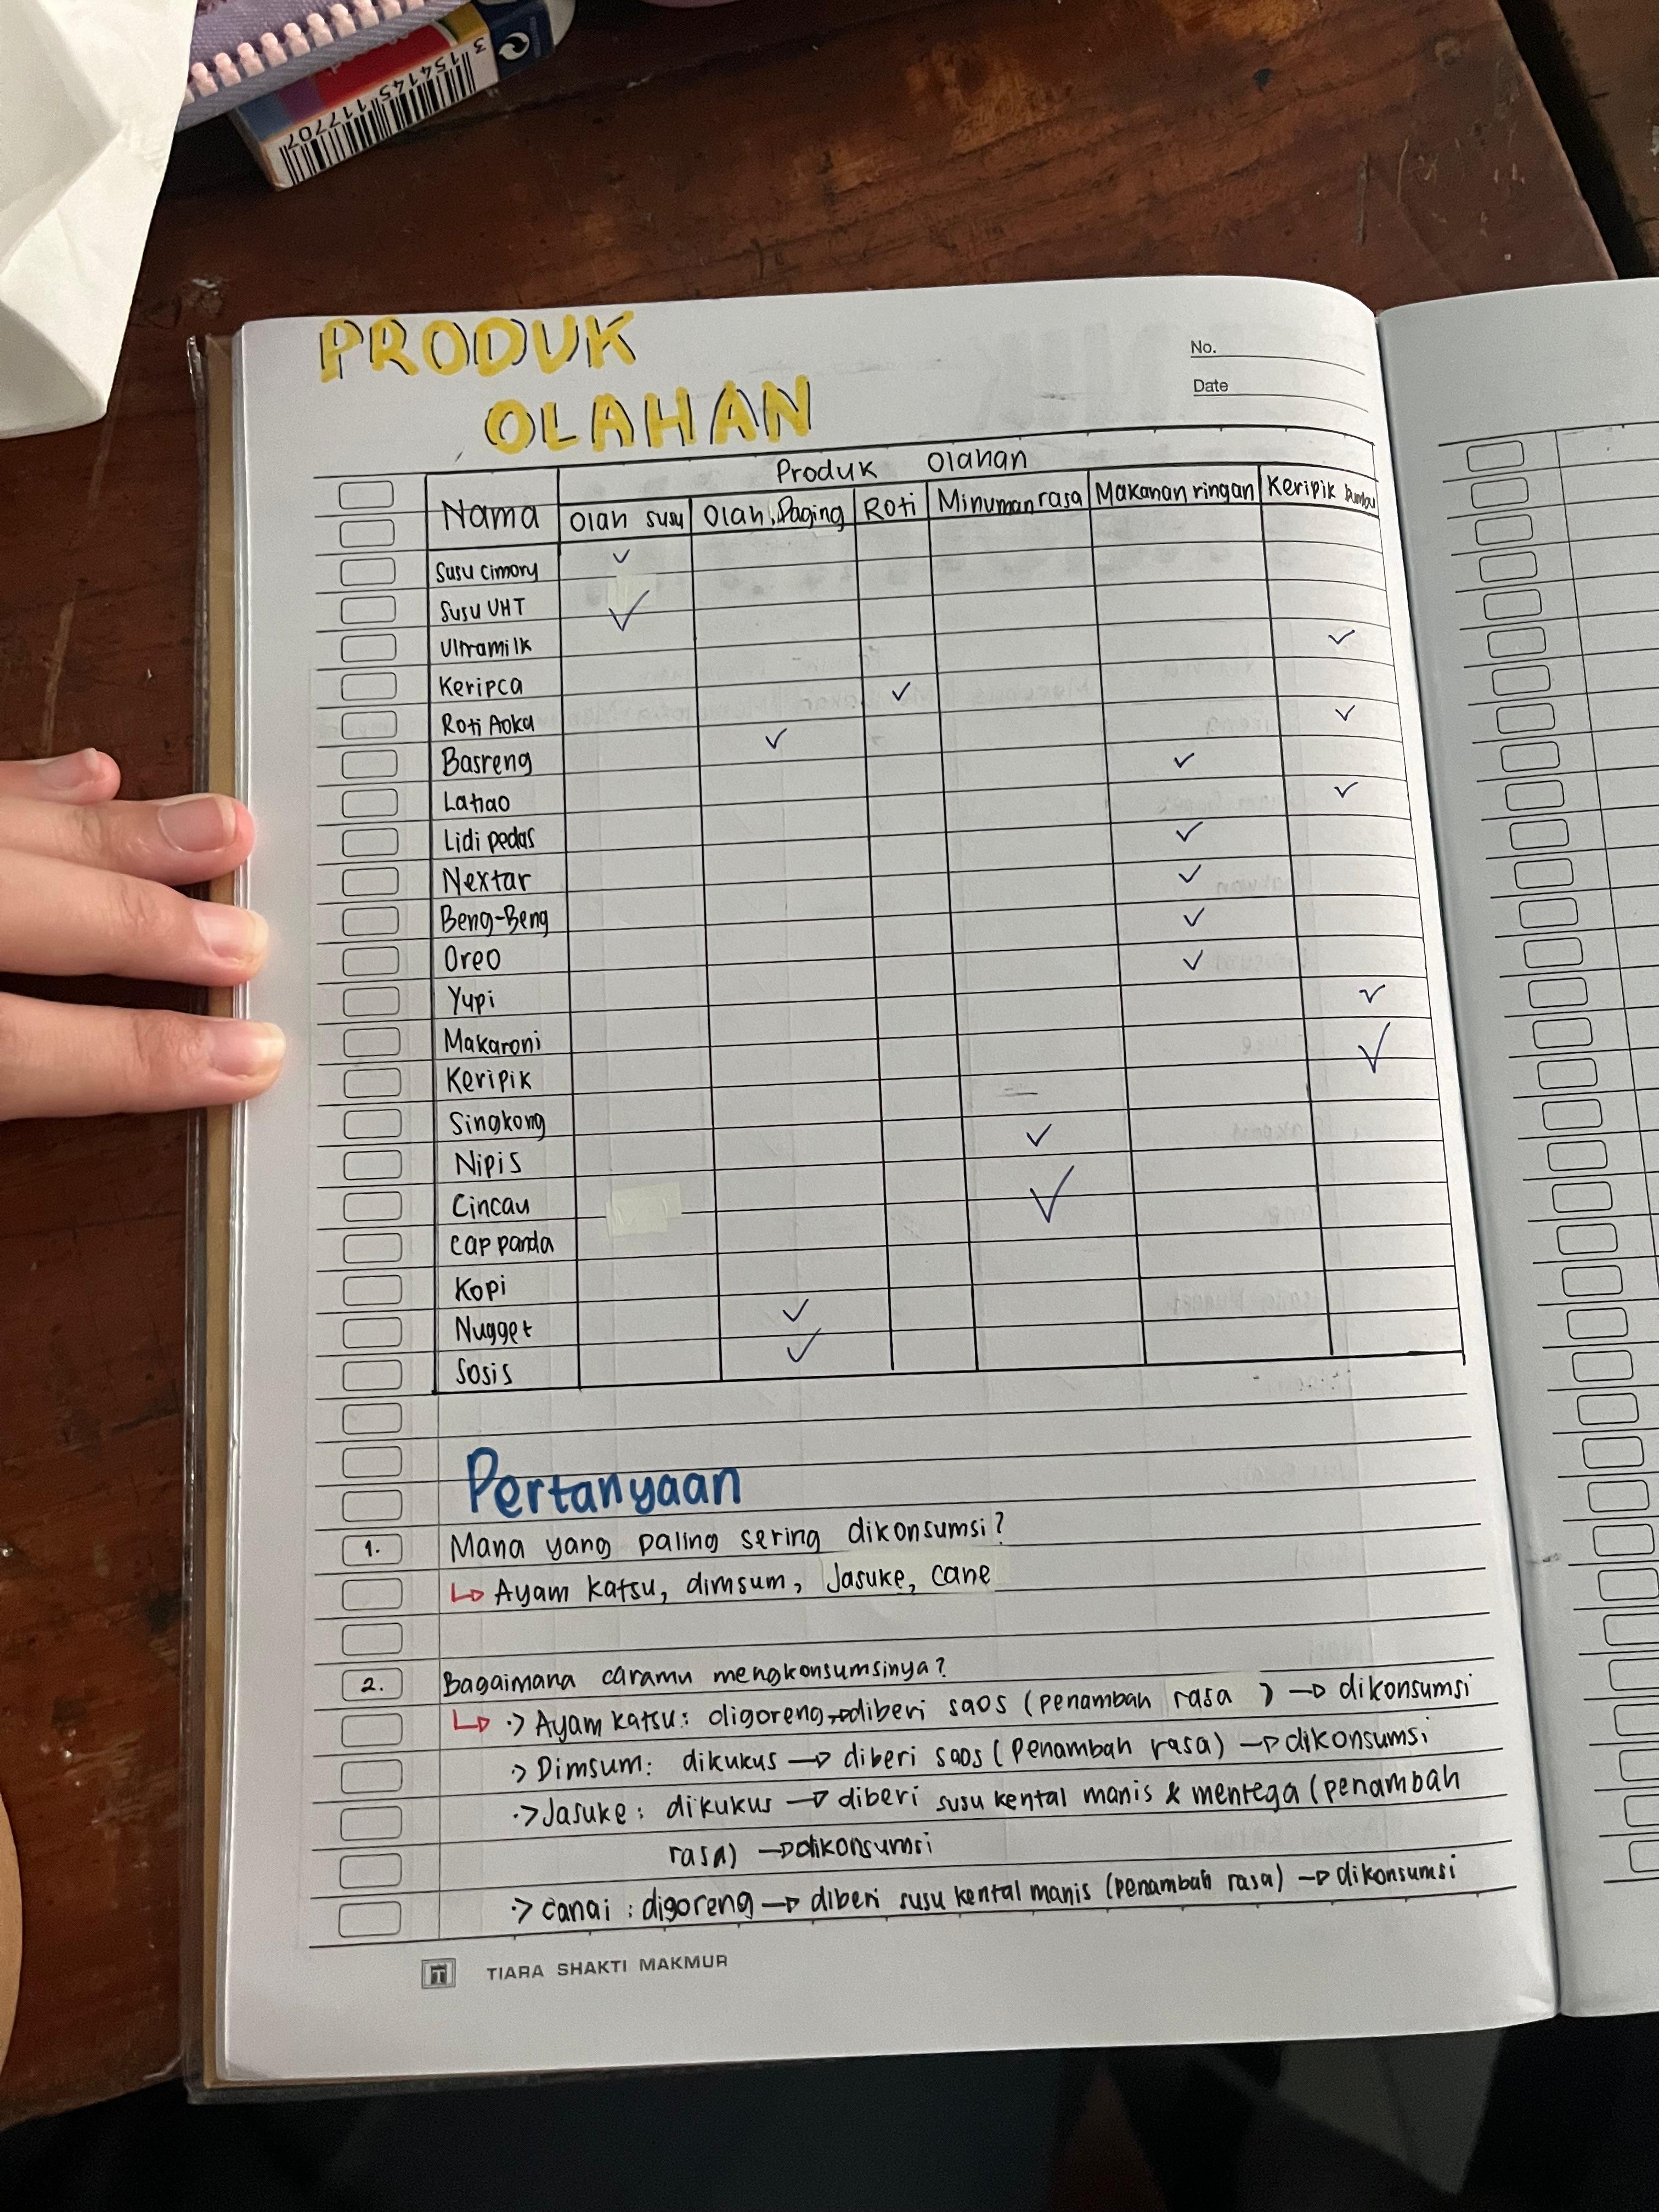 3 154145 117707
PRODUK
OLAHAN
No.
Date
Produk Olahan
Nama
Olah susu
Olah. Daging
Roti
Minuman rasa
Makanan ringan
Keripik bumbu
Susu cimory ✓
Susu UHT ✓
Ultramilk ✓
Keripca ✓
Roti Aoka ✓
Basreng ✓ ✓
Latiao ✓
Lidi pedas ✓
Nextar ✓
Beng-Beng ✓
Oreo ✓
Yupi ✓
Makaroni ✓
Keripik
Singkong ✓
Nipis
Cincau ✓
cap panda
Kopi
Nugget ✓
Sosis ✓
Pertanyaan
1. Mana yang paling sering dikonsumsi?
↳ Ayam katsu, dimsum, Jasuke, cane
2. Bagaimana caramu mengkonsumsinya?
↳ •> Ayam katsu: oligoreng → diberi saos (penambah rasa) → dikonsumsi
•> Dimsum: dikukus → diberi saos (Penambah rasa) → dikonsumsi
•> Jasuke: dikukus → diberi susu kental manis & mentega (penambah
rasa) → dikonsumsi
•> canai: digoreng → diberi susu kental manis (penambah rasa) → dikonsumsi
TIARA SHAKTI MAKMUR